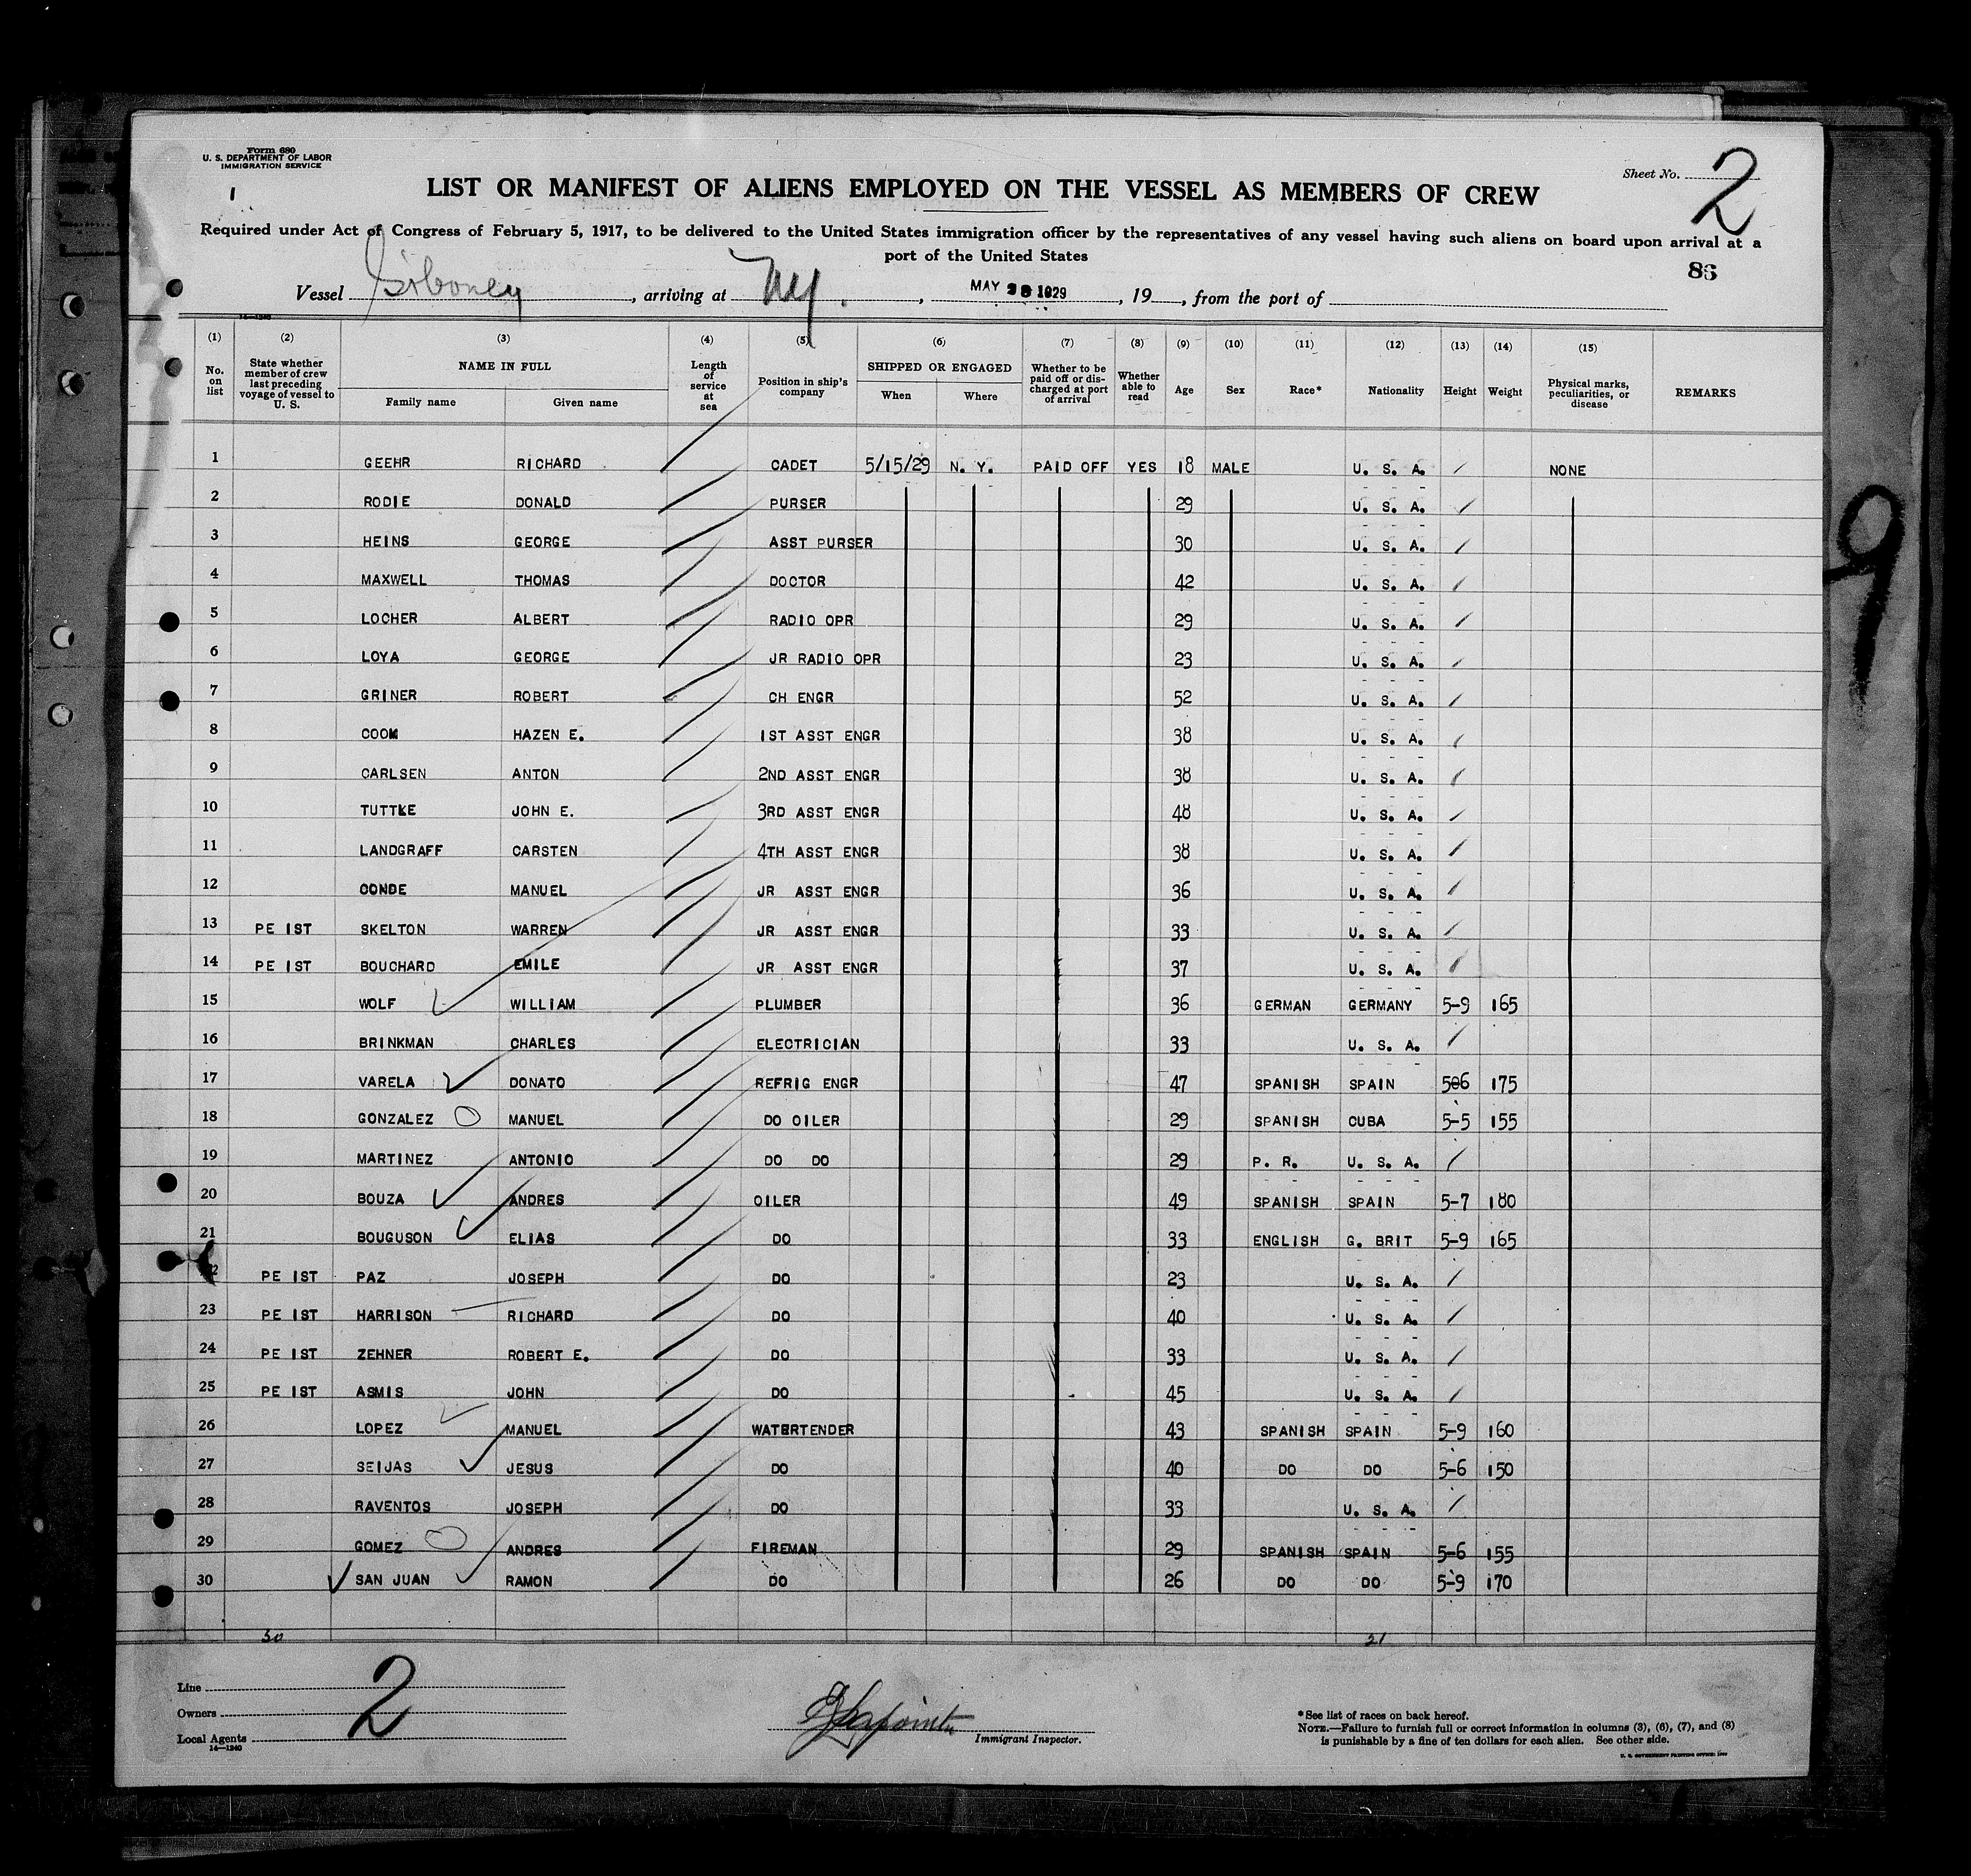 Form 680
U. S. DEPARTMENT OF LABOR
IMMIGRATION SERVICE
1
Sheet No. 2
LIST OR MANIFEST OF ALIENS EMPLOYED ON THE VESSEL AS MEMBERS OF CREW
Required under Act of Congress of February 5, 1917, to be delivered to the United States immigration officer by the representatives of any vessel having such aliens on board upon arrival at a
port of the United States
86
Vessel Siboney, arriving at NY., MAY 1929, 19, from the port of
14—1240
(1) (2) (3) (4) (5) (6) (7) (8) (9) (10) (11) (12) (13) (14) (15)
No. on list State whether member of crew last preceding voyage of vessel to U. S. NAME IN FULL Family name Given name Length of service at sea Position in ship's company SHIPPED OR ENGAGED When Where Whether to be paid off or discharged at port of arrival Whether able to read Age Sex Race* Nationality Height Weight Physical marks, peculiarities, or disease REMARKS
1 GEEHR RICHARD CADET 5/15/29 N. Y. PAID OFF YES 18 MALE U. S. A. NONE
2 RODIE DONALD PURSER 29 U. S. A.
3 HEINS GEORGE ASST PURSER 30 U. S. A.
4 MAXWELL THOMAS DOCTOR 42 U. S. A.
5 LOCHER ALBERT RADIO OPR 29 U. S. A.
6 LOYA GEORGE JR RADIO OPR 23 U. S. A.
7 GRINER ROBERT CH ENGR 52 U. S. A.
8 COOK HAZEN E. 1ST ASST ENGR 38 U. S. A.
9 CARLSEN ANTON 2ND ASST ENGR 38 U. S. A.
10 TUTTLE JOHN E. 3RD ASST ENGR 48 U. S. A.
11 LANDGRAFF CARSTEN 4TH ASST ENGR 38 U. S. A.
12 CONDE MANUEL JR ASST ENGR 36 U. S. A.
13 PE IST SKELTON WARREN JR ASST ENGR 33 U. S. A.
14 PE IST BOUCHARD EMILE JR ASST ENGR 37 U. S. A.
15 WOLF WILLIAM PLUMBER 36 GERMAN GERMANY 5-9 165
16 BRINKMAN CHARLES ELECTRICIAN 33 U. S. A.
17 VARELA DONATO REFRIG ENGR 47 SPANISH SPAIN 506 175
18 GONZALEZ MANUEL DO OILER 29 SPANISH CUBA 5-5 155
19 MARTINEZ ANTONIO DO DO 29 P. R. U. S. A.
20 BOUZA ANDRES OILER 49 SPANISH SPAIN 5-7 180
21 BOUGUSON ELIAS DO 33 ENGLISH G. BRIT 5-9 165
22 PE IST PAZ JOSEPH DO 23 U. S. A.
23 PE IST HARRISON RICHARD DO 40 U. S. A.
24 PE IST ZEHNER ROBERT E. DO 33 U. S. A.
25 PE IST ASMIS JOHN DO 45 U. S. A.
26 LOPEZ MANUEL WATERTENDER 43 SPANISH SPAIN 5-9 160
27 SEIJAS JESUS DO 40 DO DO 5-6 150
28 RAVENTOS JOSEPH DO 33 U. S. A.
29 GOMEZ ANDRES FIREMAN 29 SPANISH SPAIN 5-6 155
30 SAN JUAN RAMON DO 26 DO DO 5-9 170
30 21
Line
Owners
Local Agents
14—1240
2
Lapointe
Immigrant Inspector.
*See list of races on back hereof.
NOTE.—Failure to furnish full or correct information in columns (3), (6), (7), and (8)
is punishable by a fine of ten dollars for each alien. See other side.
9